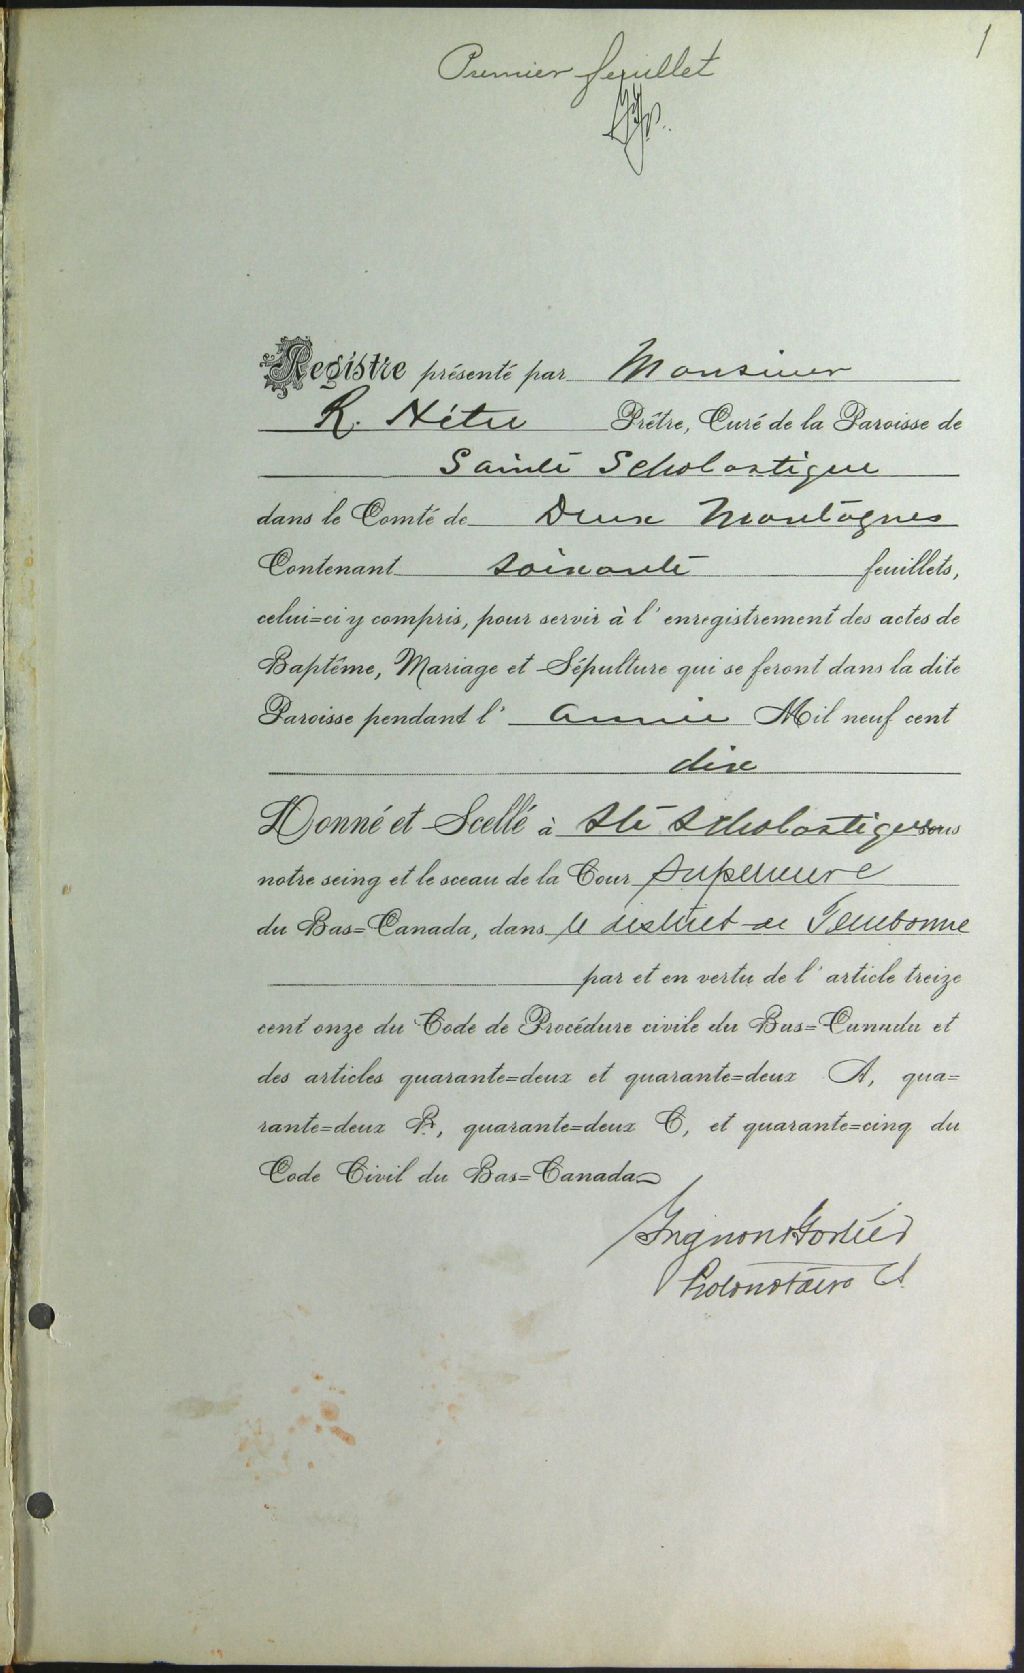 1
Premier feuillet
Registre présenté par Monsieur
R. Nétu Prêtre, Curé de la Paroisse de
Sainte Scholastique
dans le Comté de Deux Montagnes
Contenant soixante feuillets,
celui=ci y compris, pour servir à l'enregistrement des actes de
Baptême, Mariage et Sépulture qui se feront dans la dite
Paroisse pendant l'année Mil neuf cent
dix
Donné et Scellé à Ste Scholastique sous
notre seing et le sceau de la Cour Superieure
du Bas=Canada, dans le district de Terrebonne
par et en vertu de l'article treize
cent onze du Code de Procédure civile du Bas=Canada et
des articles quarante=deux et quarante=deux A, qua=
rante=deux B, quarante=deux C, et quarante=cinq du
Code Civil du Bas=Canada
Grignon & Fortier
Protonotaire CS